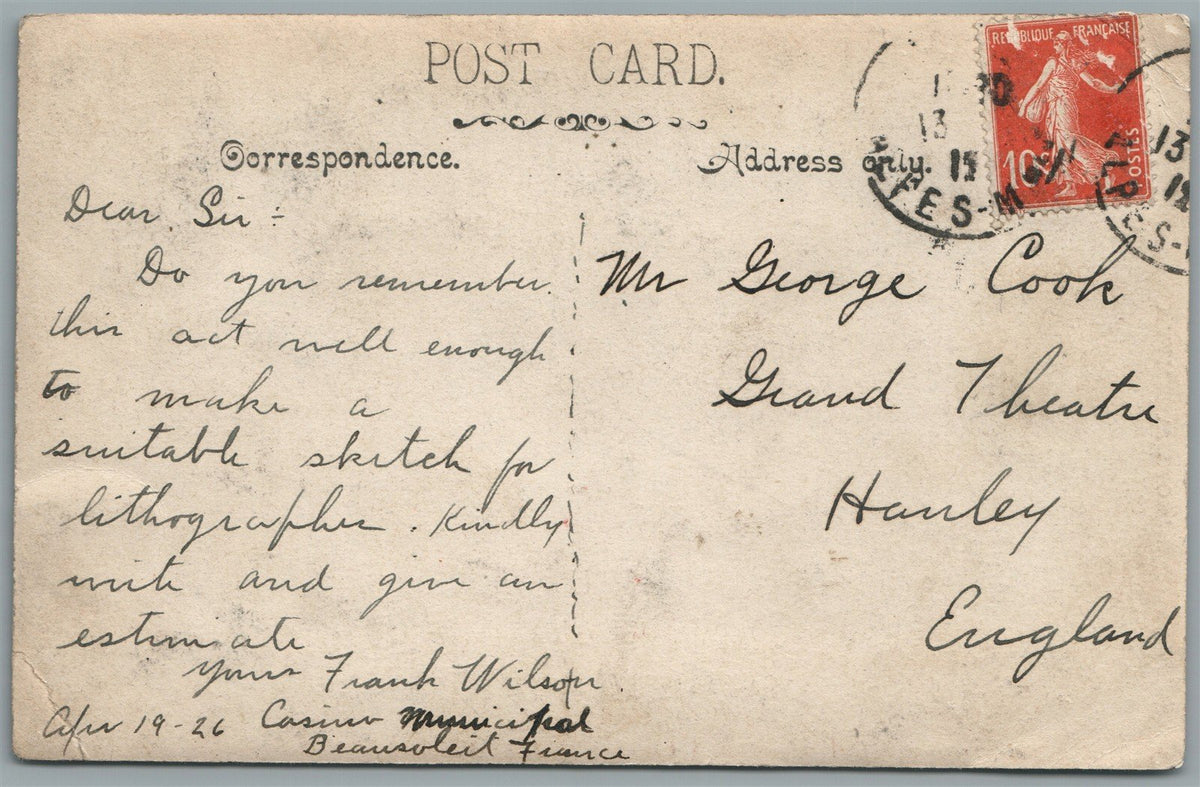 POST CARD.
Correspondence.
Address only.
REPUBLIQUE FRANÇAISE
10c
POSTES
13
15
ALPES-M
13
ALPES-
Dear Sir :-
Do you remember
this act well enough
to make a
suitable sketch for
lithographer. Kindly
write and give an
estimate
Yours Frank Wilson.
Apr 19-26 Casino Municipal
Beausoleil France
Mr George Cook
Grand Theatre
Hanley
England